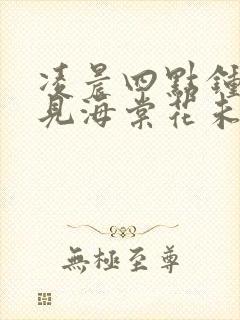 凌晨四點鍾
見海棠花未
無極至尊